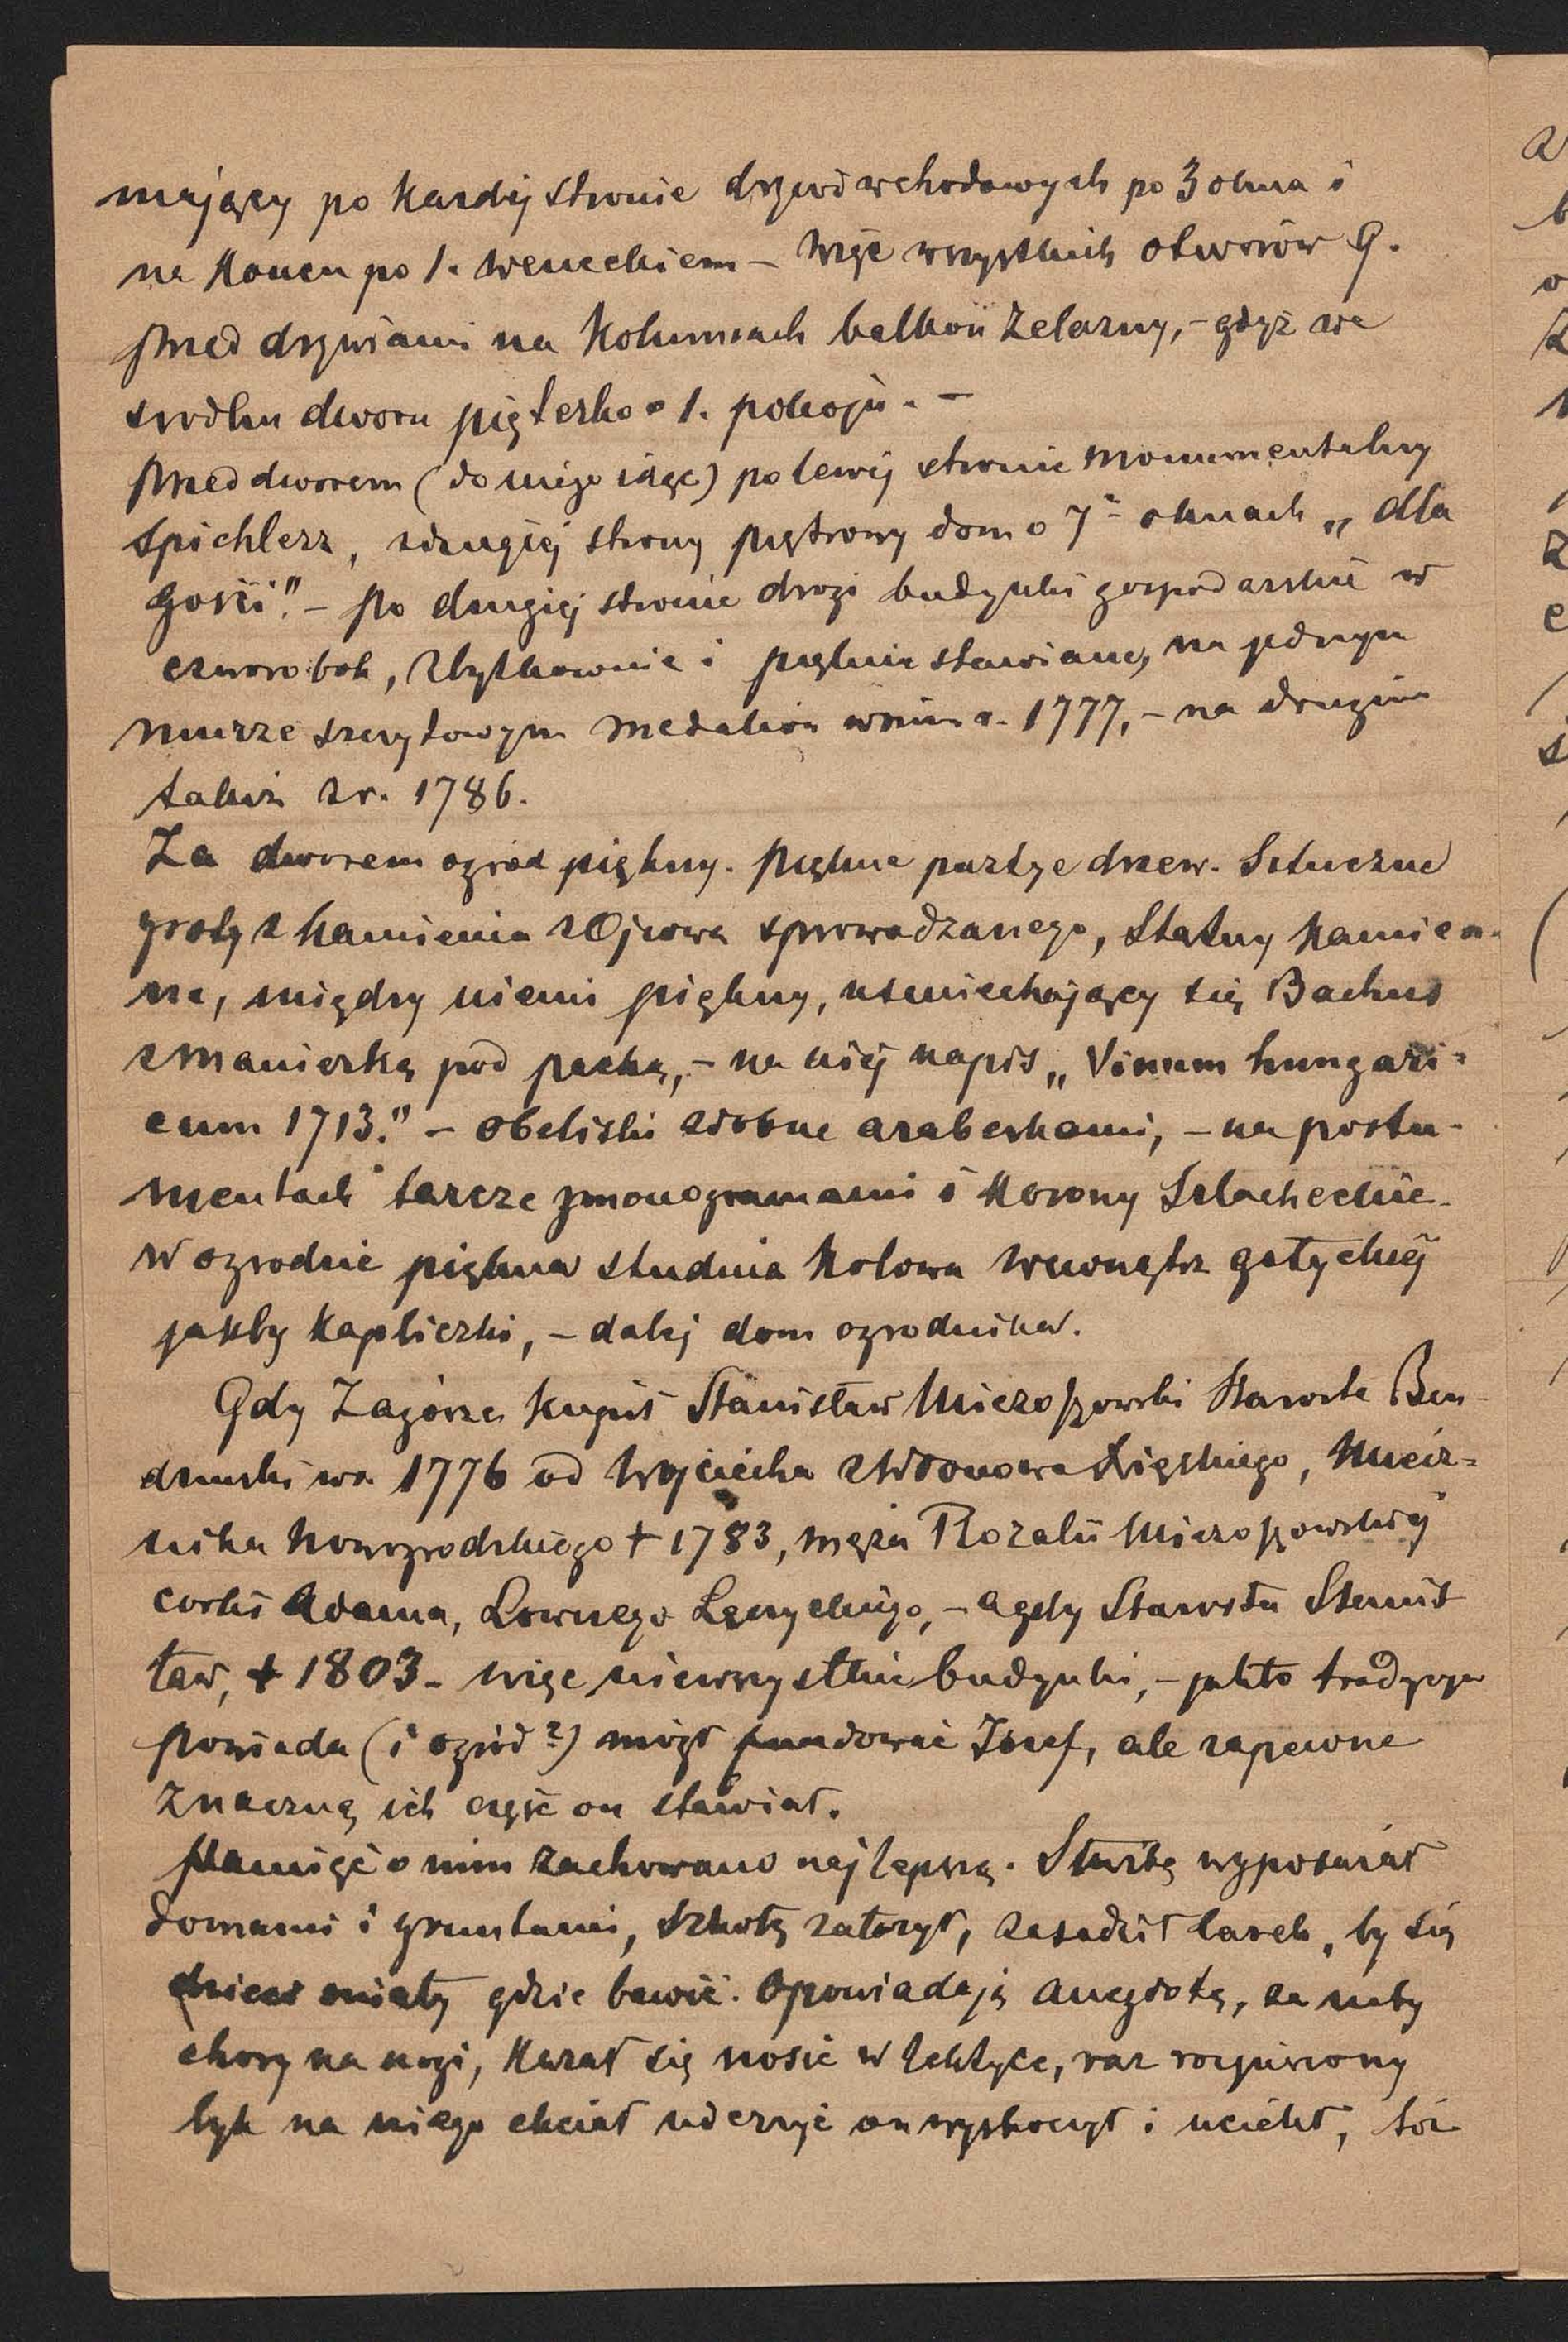 mający po każdej stronie drzwi wchodowych po 3 okna i
na końcu po 1. weneckiem – więc wszystkich otworów 9.
Przed drzwiami na kolumnach balkon żelazny, – gdyż we
środku dworu pięterko o 1. pokoju. –
Przed dworem (do niego idąc) po lewej stronie monumentalny
Spichlerz, z drugiej strony piętrowy dom o 7 oknach „dla
gości". – Po drugiej stronie drogi budynki gospodarskie w
czworobok, zbytkownie i pięknie stawiane, na jednym
murze szczytowym medalion z r. 1777, – na drugim
takiż z r. 1786.
Za dworem ogród piękny. Piękne partye drzew. Sztuczne
groty z kamienia z Ojcowa sprowadzanego, Statuy kamien-
ne, między niemi piękny, uśmiechający się Bachus
z manierką pod pachą, – na niej napis „Vinum hungari-
cum 1713." – Obeliski zdobne arabeskami, – na postu-
mentach tarcze z monogramami i korony Szlacheckie.
W ogrodzie piękna studnia kołowa wewnątrz gotyckiej
jakby kapliczki, – dalej dom ogrodnika.
Gdy Zagórze kupił Stanisław Mieroszowski Starosta Ben-
dziński w r. 1776 od Wojciecha z Wronowa Łęskiego, Miecz-
nika Nowogrodzkiego † 1783, męża Rozalii Mieroszowskiej
córki Adama, Łowczego Łęczyckiego, – a gdy Starosta Stanis
ław, † 1803. więc nie wszystkie budynki, – jak to tradycya
powiada (i ogród?) mógł fundować Józef, ale zapewne
znaczną ich część on stawiał.
Pamięć o nim zachowano najlepszą. Służbę wyposażał
domami i gruntami, szkołę założył, zasadził lasek, by się
dzieci miały gdzie bawić. Opowiadają anegdotę, że niby
chory na nogi, kazał się nosić w lektyce, raz rozjuszony
byk na niego chciał uderzyć on wyskoczył i uciekł, toż